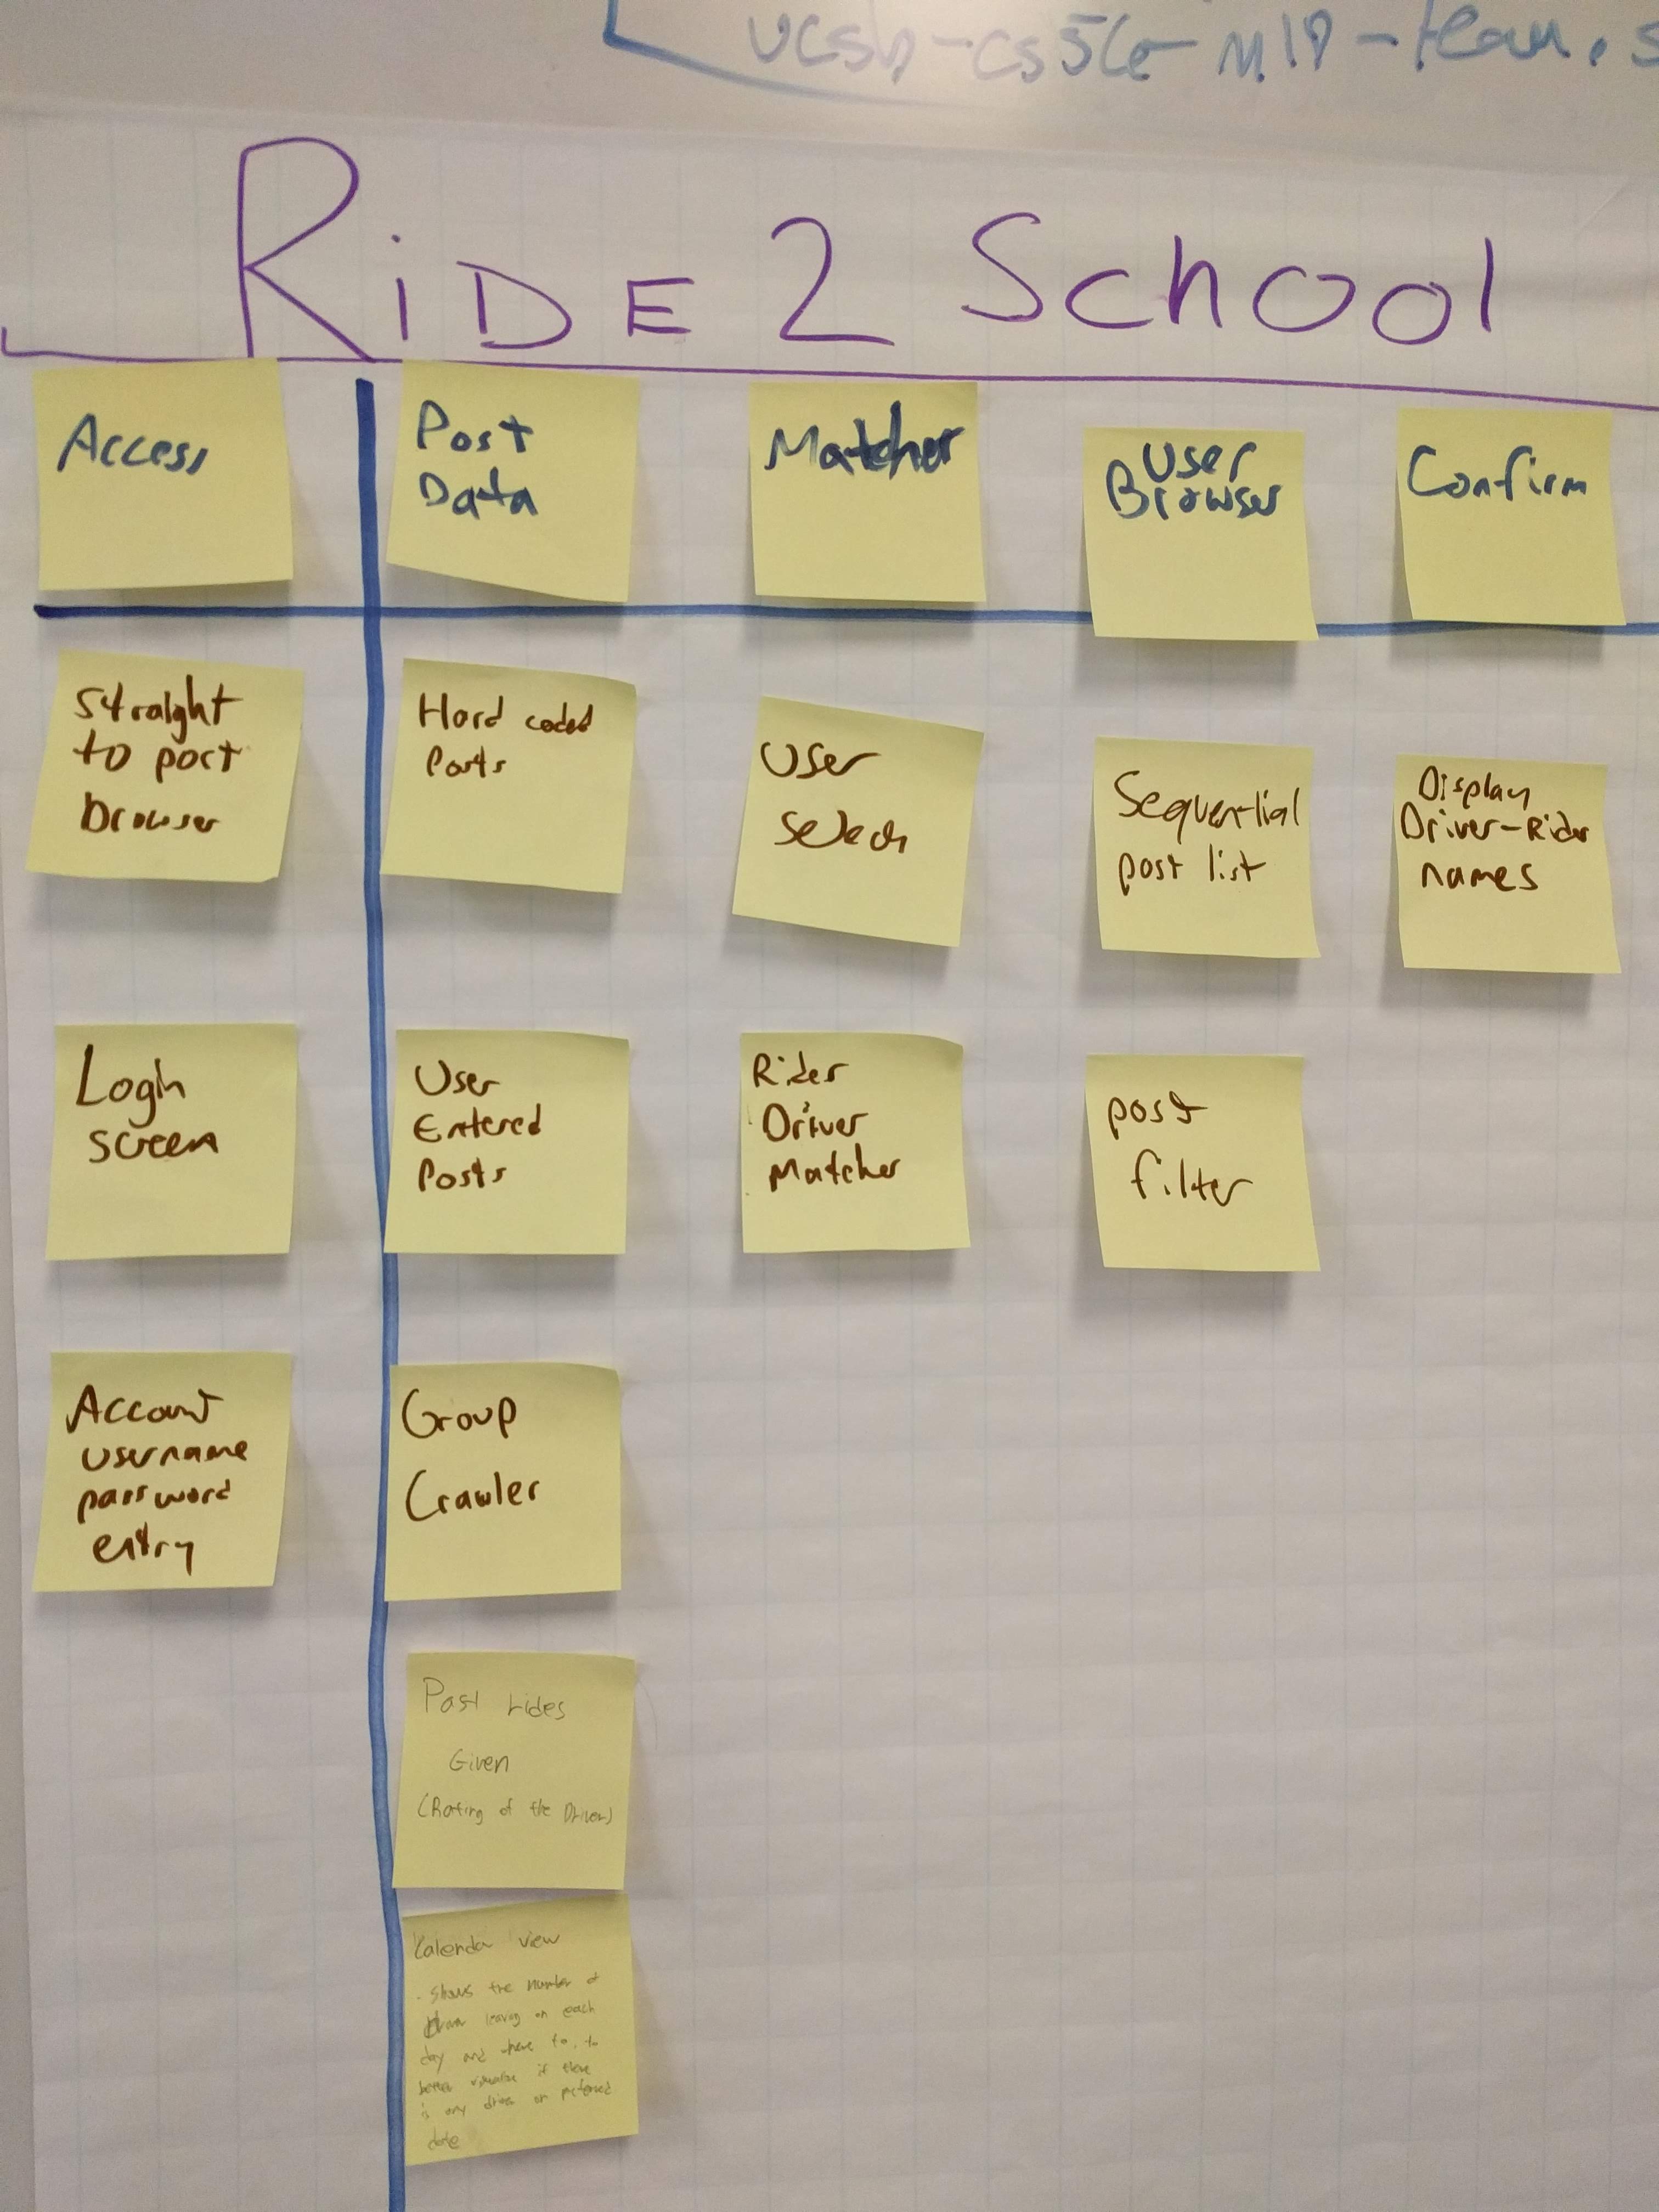 ucsb-cs56-m18-team.s
RiDE 2 School
Access
Post
Data
Matcher
User
Browser
Confirm
Straight
to post
browser
Hard coded
Posts
User
Select
Sequential
post list
Display
Driver-Rider
names
Login
screen
User
Entered
Posts
Rider
Driver
Matcher
post
filter
Account
username
password
entry
Group
Crawler
Past rides
Given
(Rating of the Driver)
Calendar view
. Shows the number of
leaving on each
day and where to, to
better visualize if there
is any drives on preferred
date